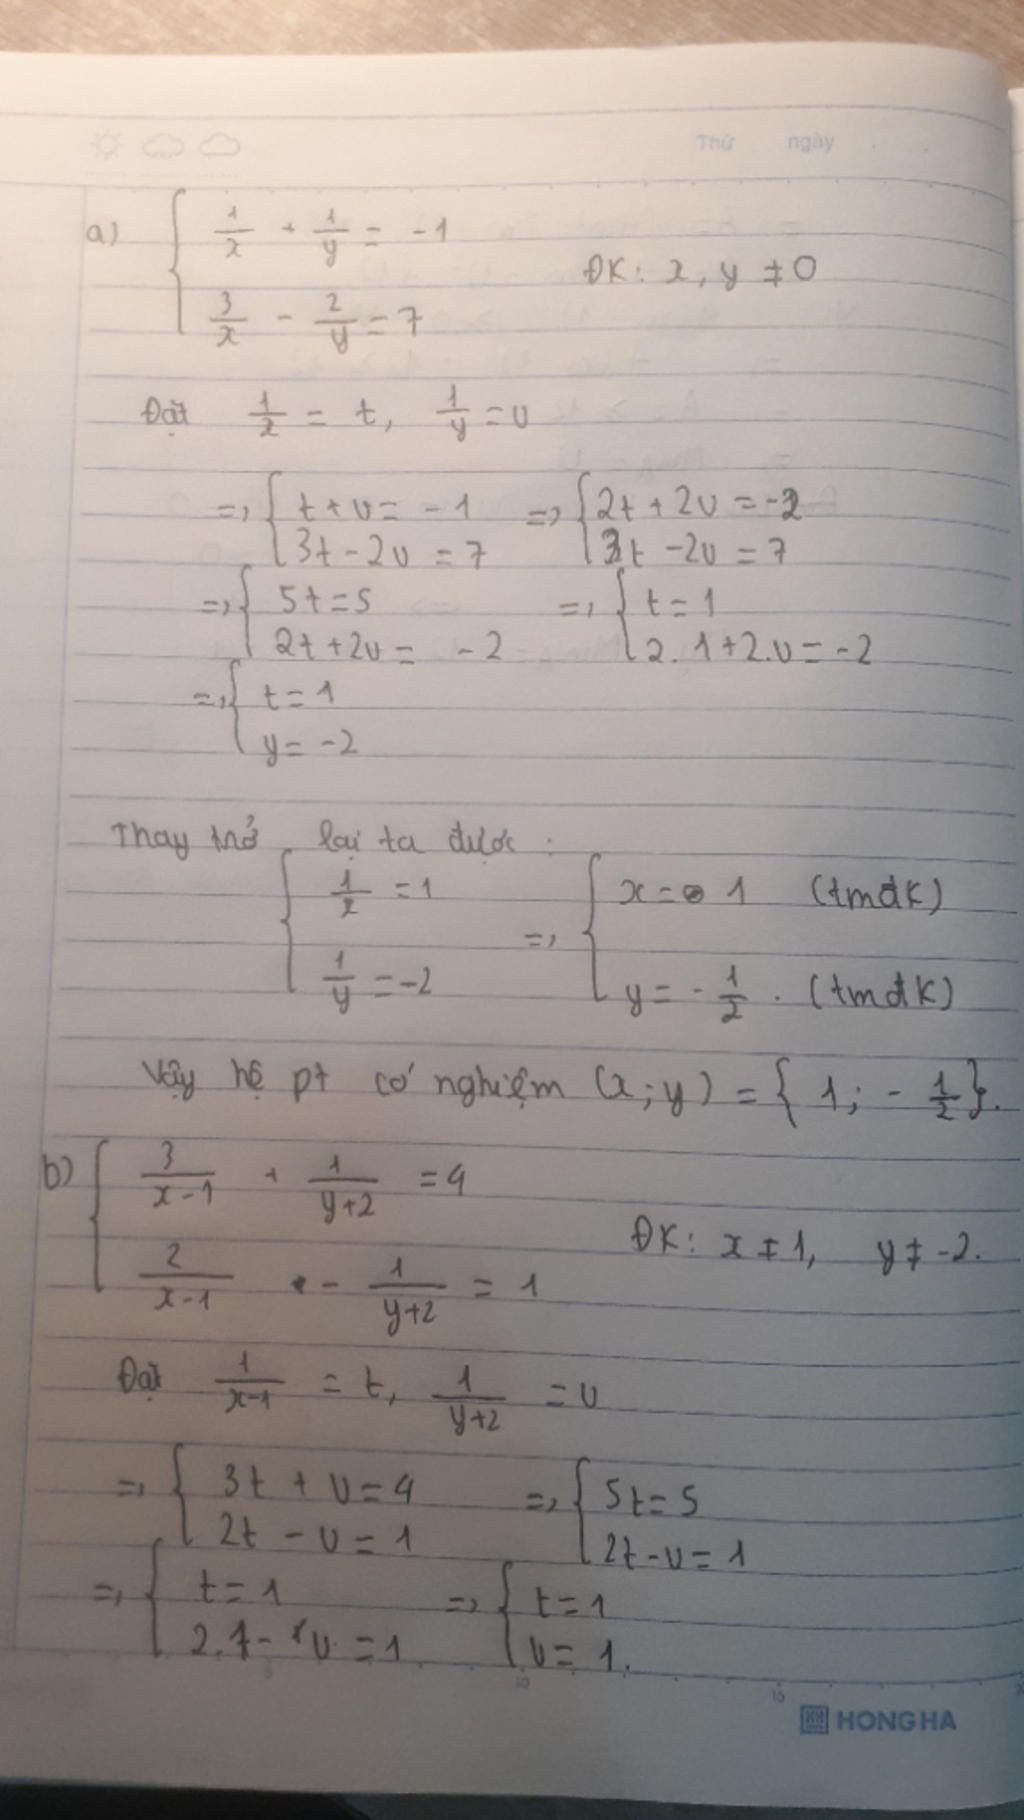 Thứ ngày
a) { 1/x + 1/y = -1
3/x - 2/y = 7 ĐK: x, y ≠ 0
Đặt 1/x = t, 1/y = v
=> { t + v = - 1 => { 2t + 2v = -2
3t - 2v = 7 3t - 2v = 7
=> { 5t = 5 => { t = 1
2t + 2v = - 2 2. 1 + 2.v = -2
=> { t = 1
y = -2
Thay trở lại ta được :
{ 1/x = 1 => { x = 1 (tmđK)
1/y = -2 y = - 1/2 . (tmđK)
Vậy hệ pt có nghiệm (x; y) = { 1; - 1/2 }.
b) { 3/(x-1) + 1/(y+2) = 4
2/(x-1) - 1/(y+2) = 1 ĐK: x ≠ 1, y ≠ -2.
Đặt 1/(x-1) = t, 1/(y+2) = v
=> { 3t + v = 4 => { 5t = 5
2t - v = 1 2t - v = 1
=> { t = 1 => { t = 1
2.1 - v = 1 v = 1.
5 10 15
HONG HA